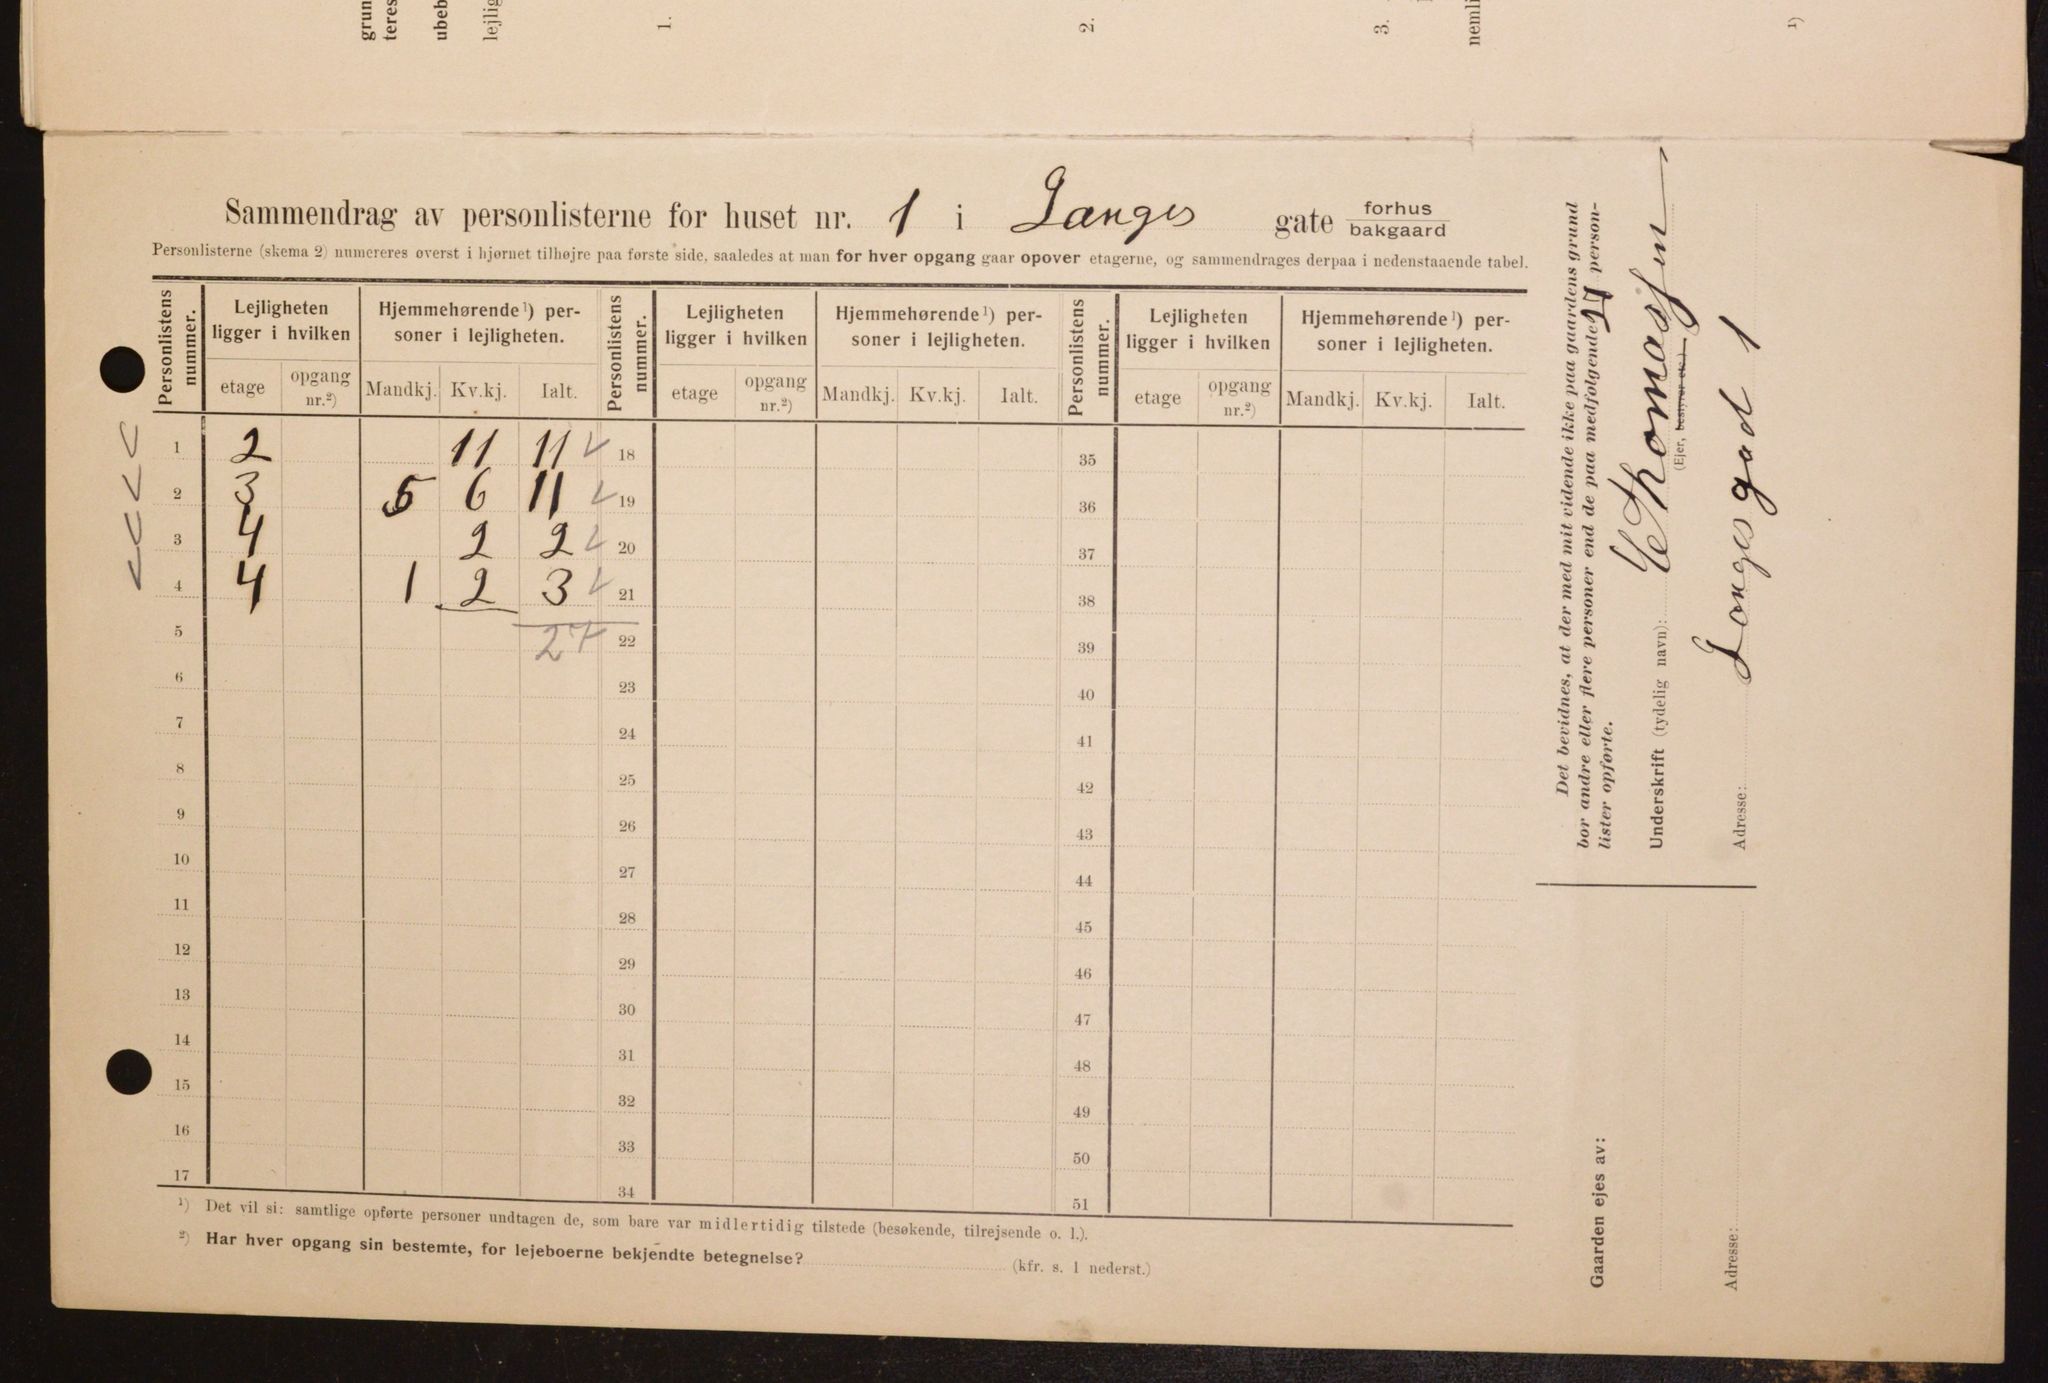 grun
teres
ubeb
lejlig
1.
2.
3.
nemli
1)
Sammendrag av personlisterne for huset nr. 1 i Langes gate forhus bakgaard
Personlisterne (skema 2) numereres øverst i hjørnet tilhøjre paa første side, saaledes at man for hver opgang gaar opover etagerne, og sammendrages derpaa i nedenstaaende tabel.
Personlistens nummer. Lejligheten ligger i hvilken Hjemmehørende 1) personer i lejligheten. Personlistens nummer. Lejligheten ligger i hvilken Hjemmehørende 1) personer i lejligheten. Personlistens nummer. Lejligheten ligger i hvilken Hjemmehørende 1) personer i lejligheten.
etage opgang nr.2) Mandkj. Kv.kj. Ialt. etage opgang nr.2) Mandkj. Kv.kj. Ialt. etage opgang nr.2) Mandkj. Kv.kj. Ialt.
1 2 11 11 18 35
2 3 5 6 11 19 36
3 4 2 2 20 37
4 4 1 2 3 21 38
5 27 22 39
6 23 40
7 24 41
8 25 42
9 26 43
10 27 44
11 28 45
12 29 46
13 30 47
14 31 48
15 32 49
16 33 50
17 34 51
1) Det vil si: samtlige opførte personer undtagen de, som bare var midlertidig tilstede (besøkende, tilrejsende o. l.).
2) Har hver opgang sin bestemte, for lejeboerne bekjendte betegnelse? (kfr. s. 1 nederst.)
Det bevidnes, at der med mit vidende ikke paa gaardens grund
bor andre eller flere personer end de paa medfølgende person-
lister opførte.
Underskrift (tydelig navn): Thomassen
(Ejer, bestyrer etc.)
Adresse: Langes gad 1
Gaarden ejes av:
Adresse: